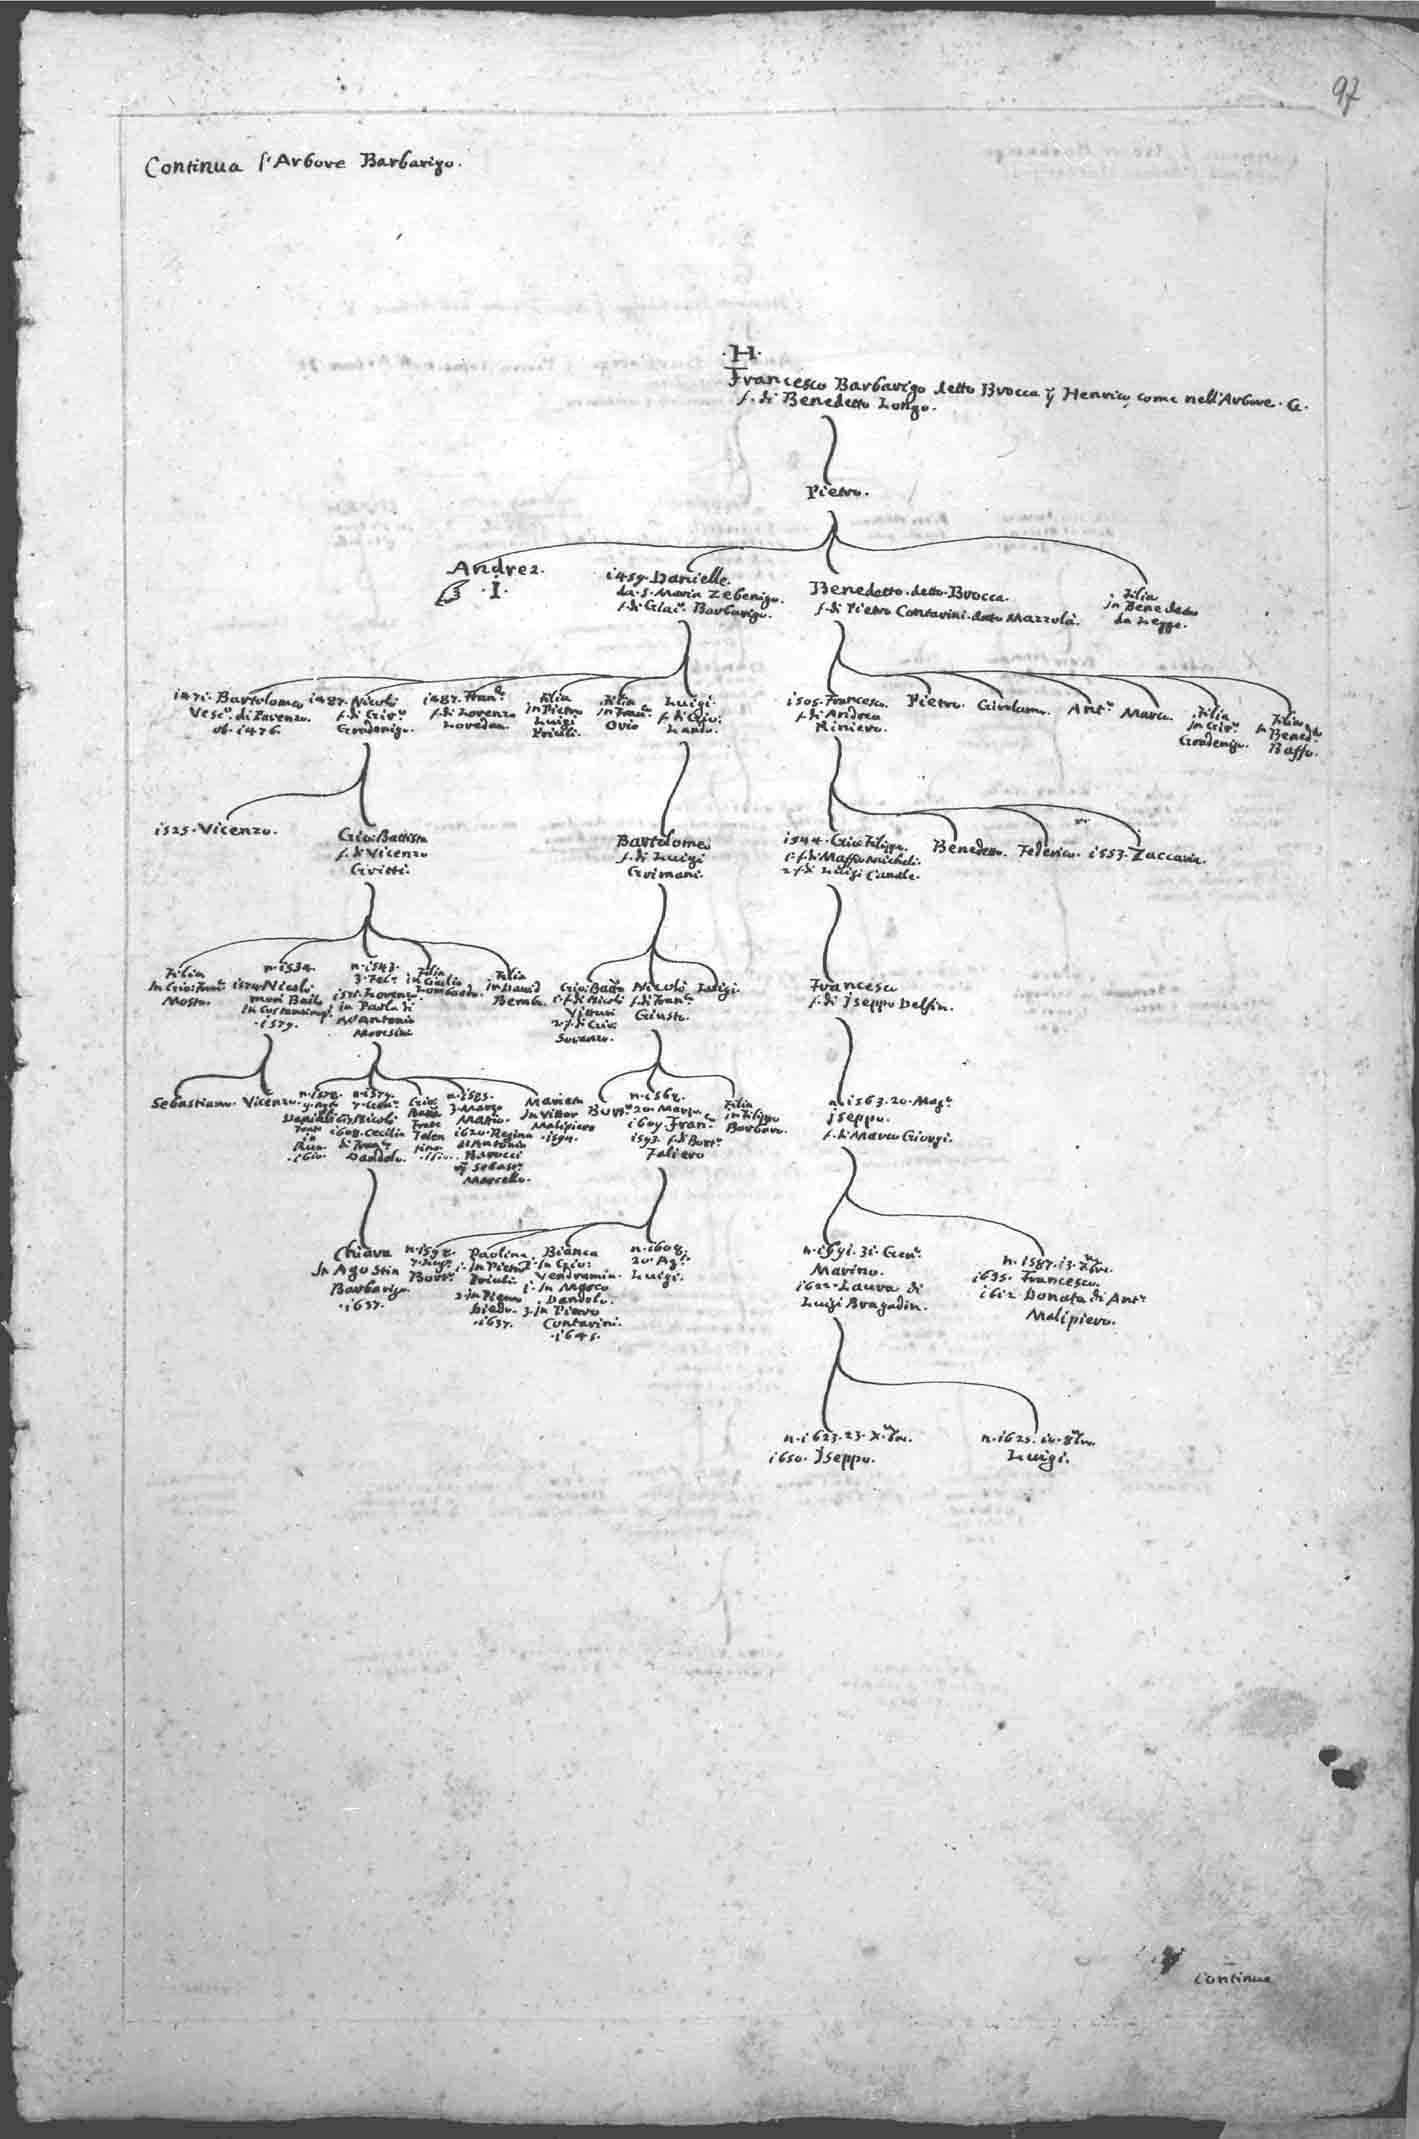 97
Continua l'Arbore Barbarigo.
·H·
Francesco Barbarigo detto Brocca q̃ Henrico, come nell'Arbore · G ·
f. di Benedetto Longo.
Pietro.
Andrea.
· I ·
1459. Danielle.
da S. Maria Zebenigo.
f. di Giac.º Barbarigo.
Benedetto detto Brocca.
f. di Pietro Contarini detto Mazzola.
Filia
in Benedetto
da Legge.
1471. Bartolomeo
Vesc.º di
ob. 1476.
1487. Nicolò
f. di Gir.º
Gradenigo.
1487. Fran.º
f. di Lorenzo
Loredan.
Filia
in Pietro
Luigi
Priuli.
Filia
in Fran.º
Ovio
Luigi.
f. di Gio:
Lando.
1505. Francesco.
f. di Andrea
Riniero.
Pietro.
Girolamo.
Ant.º
Marco.
Filia
in Gir.º
Gradenigo.
Filia
in Bened.º
Baffo.
1525. Vicenzo.
Gio: Battista
f. di Vicenzo
Gritti.
Bartolomeo
f. di Luigi
Grimani.
1544. Gio: Filippo.
1. f. di Maffio Micheli.
2. f. di Luigi Canale.
Benedetto.
Federico.
1553. Zaccaria.
Filia
in Gio: Fran.º
Mosto.
n. 1534.
1574. Nicolò
morì Bailo
in Costantinop.
· 1579.
n. 1543.
3. Feb.º
1571. Lorenzo
in Paola di
M. Antonio
Moresini
Filia
in Giulio
Lombardo.
Filia
in David
Bembo.
Gio: Batta
1. f. di Nicolò
Vitturi
2. f. di Gio:
Soranzo.
Nicolò
f. di Fran.º
Giusto.
Luigi.
Francesco
f. di Iseppo Delfin.
Sebastiano.
Vicenzo.
n. 1577.
7. Gen.º
Nicolò
1608. Cecilia
di Fran.º
Dandolo.
Gio:
Batta
n. 1585.
3. Marzo
Mattio.
1620. Regina
di Antonio
Barocci
q̃ Sebast.º
Marcello.
Marieta
in Vittor
Malipiero
· 1594.
Bort.º
n. 1562.
20. Marzo.
1607. Fran.º
1593. f. di Bort.º
Faliero
Filia
in Filippo
Barbaro.
n. 1563. 20. Mag.º
Iseppo.
f. di Marco Giorgi.
Chiara
in Agostin
Barbarigo.
· 1637.
n. 1598.
Bort.º
Paolina
1. in Pietro
Priuli
2. in Piero
Diedo.
· 1637.
Bianca
1. in Gio:
Vendramin.
2. in Marco
Dandolo.
3. in Pietro
Contarini.
· 1645.
n. 1608.
20. Ag.º
Luigi.
n. 1591. 31. Gen.º
Marino.
1622. Laura di
Luigi Bragadin.
n. 1587. 13. Xbre.
1635. Francesco.
1612. Donata di Ant.º
Malipiero.
n. 1623. 23. Xbre.
1650. Iseppo.
n. 1625. 10. 8bre.
Luigi.
Continua